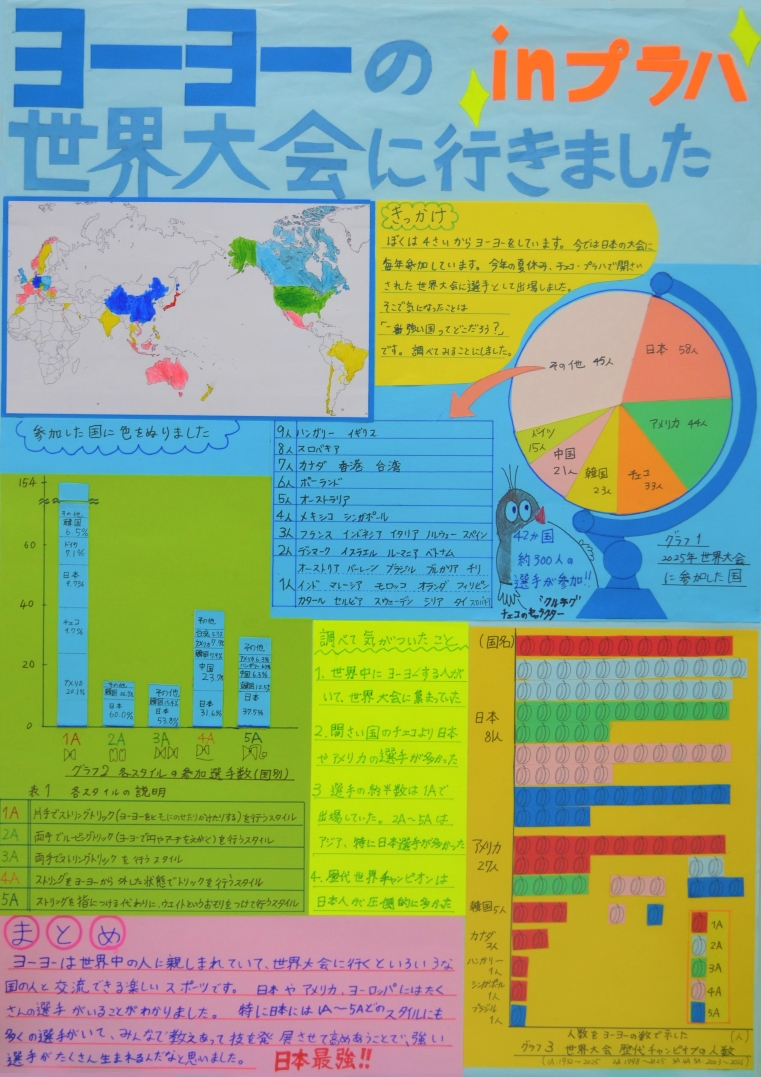 ヨーヨーの inプラハ
世界大会に行きました
きっかけ
ぼくは4さいからヨーヨーをしています。今では日本の大会に
毎年参加しています。今年の夏休み、チェコ・プラハで開さい
された世界大会に選手として出場しました。
そこで気になったことは
「一番強い国ってどこだろう?」
です。調べてみることにしました。
参加した国に色をぬりました
その他 45人
日本 58人
アメリカ 44人
チェコ
33人
韓国
23人
中国
21人
ドイツ
15人
9人 ハンガリー イギリス
8人 スロベキア
7人 カナダ 香港 台湾
6人 ポーランド
5人 オーストラリア
4人 メキシコ シンガポール
3人 フランス インドネシア イタリア ノルウェー スペイン
2人 デンマーク イスラエル ルーマニア ベトナム
オーストリア バーレーン ブラジル ブルガリア チリ
1人 インド マレーシア モロッコ オランダ フィリピン
カタール セルビア スウェーデン シリア タイ
42か国
約300人の
選手が参加!!
"クルテク"
チェコのキャラクター
グラフ1
2025年世界大会
に参加した国
154
60
40
20
0
その他
韓国
6.5%
ドイツ
7.1%
日本
チェコ
アメリカ
20.1%
その他
日本
60.0%
その他
日本
53.8%
その他
中国
日本
31.6%
その他
日本
37.5%
1A 2A 3A 4A 5A
グラフ2 各スタイルの参加選手数(国別)
表1 各スタイルの説明
1A 片手でストリングトリック(ヨーヨーをひもにのせたりかけたりする)を行うスタイル
2A 両手でルーピングトリック(ヨーヨーで円やアーチをえがく)を行うスタイル
3A 両手でストリングトリックを行うスタイル
4A ストリングをヨーヨーから外した状態でトリックを行うスタイル
5A ストリングを指につける代わりに、ウエイトというおもりをつけて行うスタイル
調べて気がついたこと
1. 世界中にヨーヨーする人が
いて、世界大会に集まっていた
2. 開さい国のチェコより日本
やアメリカの選手が多かった
3 選手の約半数は1Aで
出場していた。2A〜5Aは
アジア、特に日本選手が多かった
4. 歴代世界チャンピオンは
日本人が圧倒的に多かった
(国名)
日本
81人
アメリカ
27人
韓国5人
カナダ
3人
ハンガリー
1人
シンガポール
1人
ブラジル
1人
1A
2A
3A
4A
5A
人数をヨーヨーの数で示した (人)
グラフ3 世界大会 歴代チャンピオンの人数
まとめ
ヨーヨーは世界中の人に親しまれていて、世界大会に行くといろいろな
国の人と交流できる楽しいスポーツです。日本やアメリカ、ヨーロッパにはたく
さんの選手がいることがわかりました。特に日本には1A〜5Aどのスタイルにも
多くの選手がいて、みんなで教えあって技を発展させて高めあうことで、強い
選手がたくさん生まれるんだなと思いました。 日本最強!!